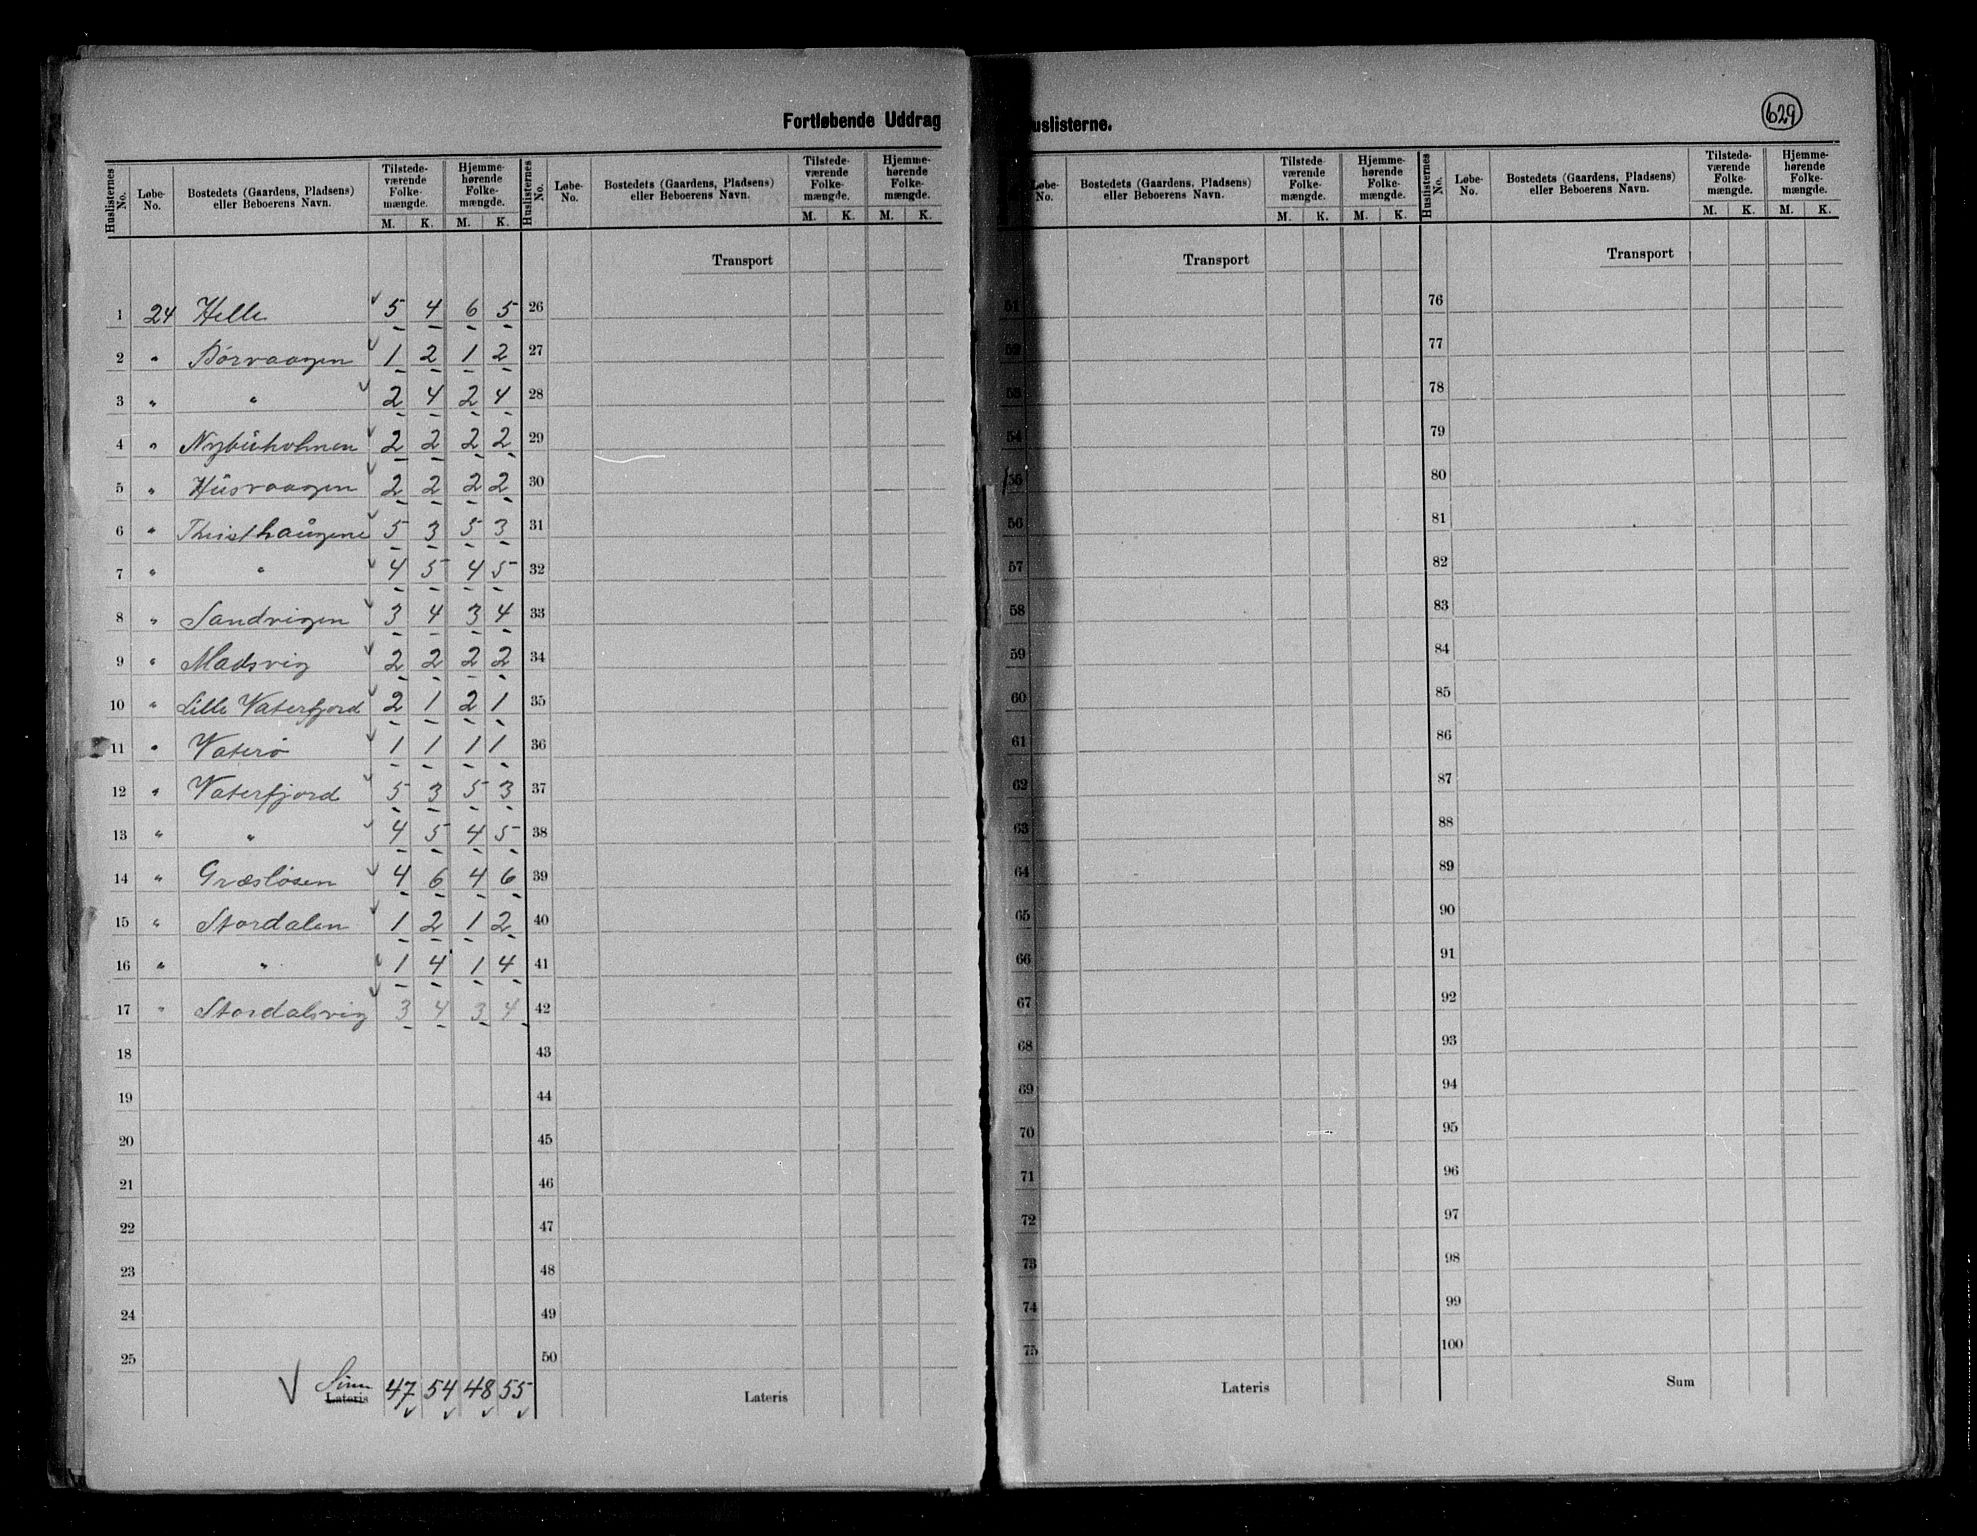 629
Fortløbende Uddrag uslisterne.
Huslisternes No. Løbe-No. Bostedets (Gaardens, Pladsens) eller Beboerens Navn. Tilstede-værende Folke-mængde. M. K. Hjemme-hørende Folke-mængde. M. K.
Huslisternes No. Løbe-No. Bostedets (Gaardens, Pladsens) eller Beboerens Navn. Tilstede-værende Folke-mængde. M. K. Hjemme-hørende Folke-mængde. M. K.
Løbe-No. Bostedets (Gaardens, Pladsens) eller Beboerens Navn. Tilstede-værende Folke-mængde. M. K. Hjemme-hørende Folke-mængde. M. K.
Huslisternes No. Løbe-No. Bostedets (Gaardens, Pladsens) eller Beboerens Navn. Tilstede-værende Folke-mængde. M. K. Hjemme-hørende Folke-mængde. M. K.
Transport Transport Transport
1 24 Helle 5 4 6 5 26 51 76
2 " Børvaagen 1 2 1 2 27 52 77
3 " " 2 4 2 4 28 53 78
4 " Nybuholmen 2 2 2 2 29 54 79
5 " Husvaagen 2 2 2 2 30 55 80
6 " Thisthaugene 5 3 5 3 31 56 81
7 " " 4 5 4 5 32 57 82
8 " Sandvigen 3 4 3 4 33 58 83
9 " Madsvig 2 2 2 2 34 59 84
10 " Lille Vaterfjord 2 1 2 1 35 60 85
11 " Vaterø 1 1 1 1 36 61 86
12 " Vaterfjord 5 3 5 3 37 62 87
13 " " 4 5 4 5 38 63 88
14 " Græsløsen 4 6 4 6 39 64 89
15 " Stordalen 1 2 1 2 40 65 90
16 " " 1 4 1 4 41 66 91
17 " Stordalsvig 3 4 3 4 42 67 92
18 43 68 93
19 44 69 94
20 45 70 95
21 46 71 96
22 47 72 97
23 48 73 98
24 49 74 99
25 50 75 100
Sum Lateris 47 54 48 55 Lateris Lateris Sum